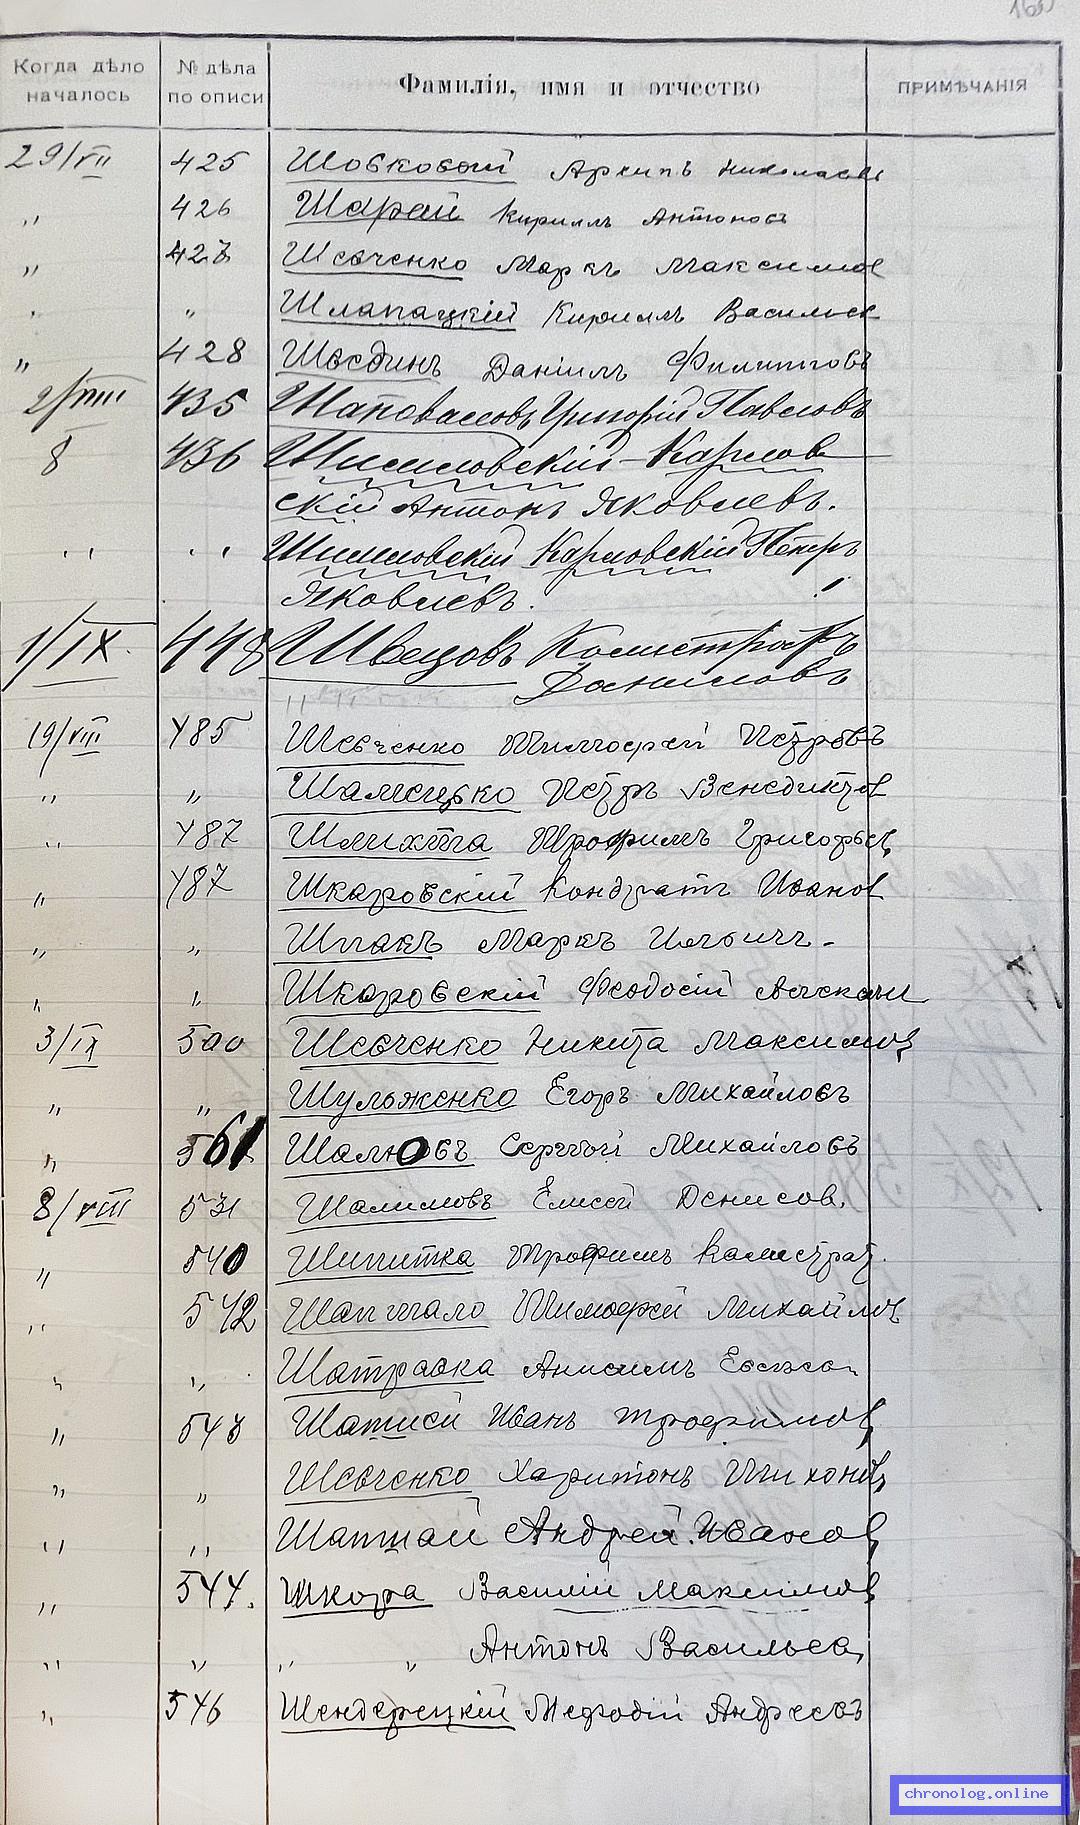 Когда дѣло началось № дѣла по описи Фамилія, имя и отчество ПРИМѢЧАНІЯ
29/VII 425 Шовковый Архипъ Николаевъ
„ 426 Шарай Кириллъ Антоновъ
„ 427 Шевченко Маркъ Максимов
„ „ Шлапацкій Кириллъ Васильев
„ 428 Даніилъ Филипповъ
2/VIII 435 Шаповаловъ Григорій Павловъ
8 436 Шимиловскій-Карлов
скій Антонъ Яковлевъ.
„ „ Шимиловскій Карловскій Петръ
Яковлевъ.
1/IX. 448 Швецовъ Калистратъ
Даниловъ
19/VIII 485 Шевченко Тимофей Петровъ
„ „ Петръ Венедиктов
„ 487 Шлихта Трофимъ Григорьев
„ 487 Шкаровскій Кондратъ Иванов
„ „ Шпакъ Маркъ Ильичъ
„ „ Шкаровскій Феодосій
3/IX 500 Шевченко Никита Максимов
„ „ Шульженко Егоръ Михайловъ
„ 561 Шалюовъ Сергѣй Михайловъ
8/VIII 531 Шалимовъ Елисей Денисов.
„ 540 Шипитка Трофимъ Калистрат.
„ 542 Шаптало Тимофей Михайлов
„ „ Шатравка Анисимъ
„ 543 Иванъ Трофимов
„ „ Шевченко Харитонъ Тихонов
„ „ Шаптай Андрей Иванов
„ 544. Шкора Василій Максимов
„ „ „ „ Антонъ Васильев
„ 546 Шендерецкій Мефодій Андреевъ
chronolog.online